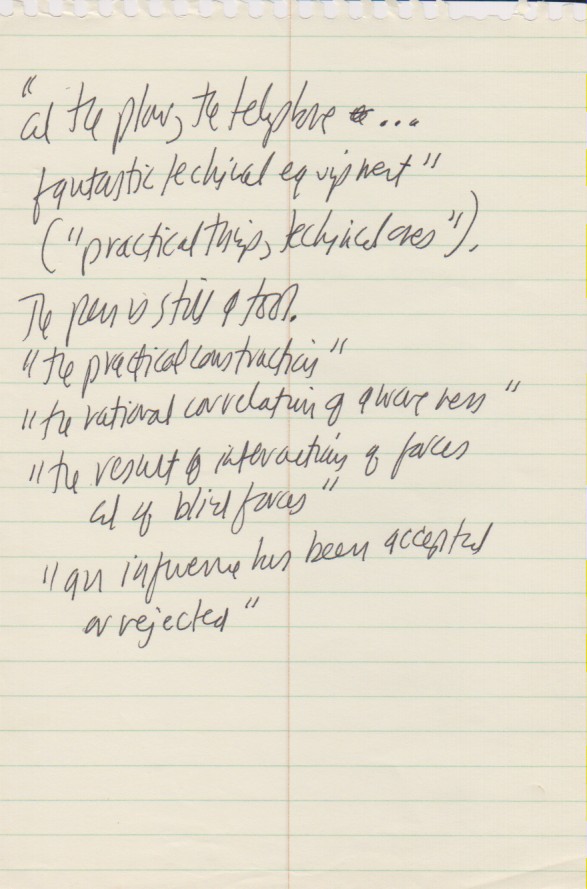 "and the plow, the telephone ...
fantastic technical equipment"
("practical things, technical ones").
The pen is still a tool.
"the practical construction"
"the rational correlation of awareness"
"the result of interactions of forces
and of blind forces"
"an influence has been accepted
or rejected"